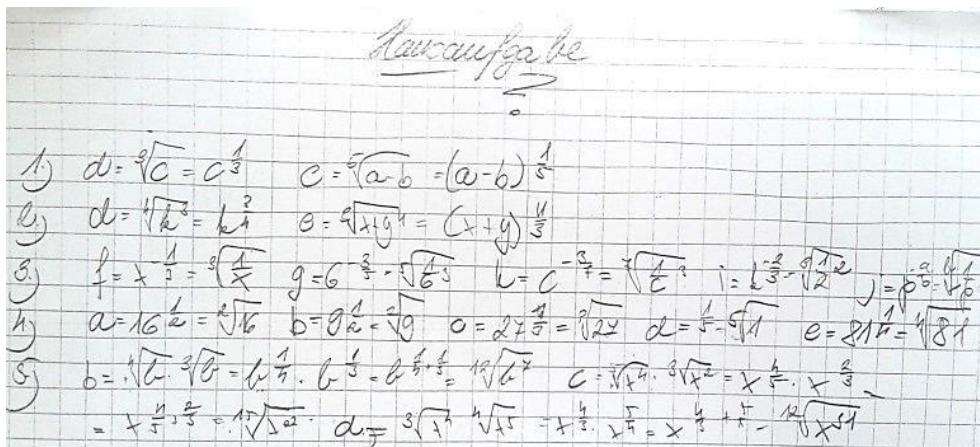 Hausaufgabe
1.) d = ∛c = c^(1/3) c = ⁵√(a-b) = (a-b)^(1/5)
2.) d = ⁴√(k³) = k^(3/4) e = ³√(x+y)⁴ = (x+y)^(4/3)
3.) f = x^(-1/3) = ³√(1/x) g = 6^(-3/5) = ⁵√(1/6)³ h = c^(-3/7) = ⁷√(1/c)³ i = 2^(-2/3) = ³√(1/2)² j = p^(-a/b) =
4.) a = 16^(1/2) = ²√16 b = 9^(1/2) = ²√9 c = 27^(1/3) = ³√27 d = 1/5 = ⁵√1 e = 81^(1/4) = ⁴√81
5.) b = ⁴√b · ³√b = b^(1/4) · b^(1/3) = b^(1/4+1/3) = ¹²√(b⁷) c = ⁵√(x⁴) · ³√(x²) = x^(4/5) · x^(2/3) =
= x^(4/5+2/3) = d = ³√(x⁴) ⁴√(x⁵) = x^(4/3) · x^(5/4) = x^(4/3+5/4) = ¹²√(x³¹)